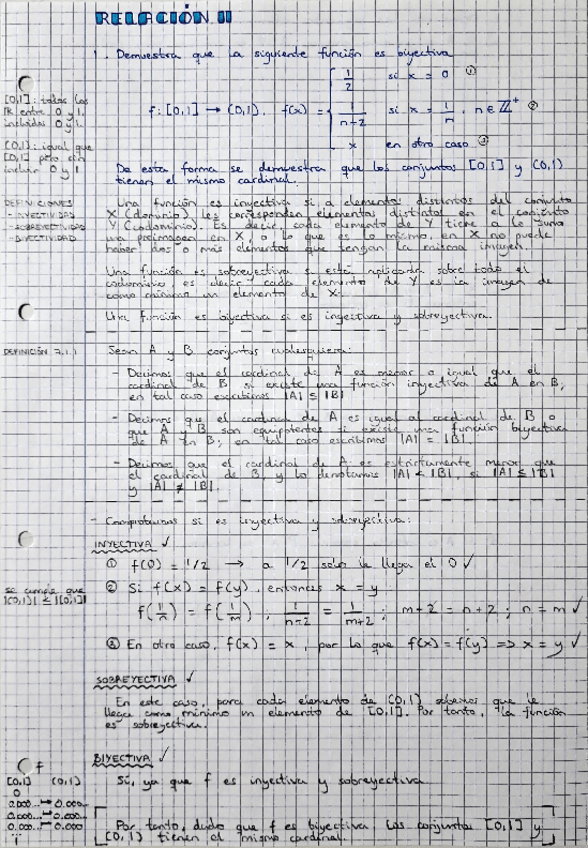 RELACIÓN II
1. Demuestra que la siguiente función es biyectiva
f: [0,1] → (0,1), f(x) =
1/2 si x = 0 ①
1/(n+2) si x = 1/n, n ∈ ℤ⁺ ②
x en otro caso ③
[0,1]: todos los
ℝ entre 0 y 1,
incluidos 0 y 1.
(0,1): igual que
[0,1] pero sin
incluir 0 y 1
De esta forma se demuestra que los conjuntos [0,1] y (0,1)
tienen el mismo cardinal.
DEFINICIONES
- INYECTIVIDAD
- SOBREYECTIVIDAD
- BIYECTIVIDAD
Una función es inyectiva si a elementos distintos del conjunto
X (dominio), les corresponden elementos distintos en el conjunto
Y (codominio). Es decir, cada elemento de Y tiene a lo sumo
una preimagen en X, o lo que es lo mismo, en X no puede
haber dos o más elementos que tengan la misma imagen.
Una función es sobreyectiva si está aplicada sobre todo el
codominio, es decir, cada elemento de Y es la imagen de
como mínimo un elemento de X.
Una función es biyectiva si es inyectiva y sobreyectiva.
DEFINICIÓN 7.1.1
Sean A y B conjuntos cualesquiera:
- Decimos que el cardinal de A es menor o igual que el
cardinal de B si existe una función inyectiva de A en B,
en tal caso escribimos |A| ≤ |B|
- Decimos que el cardinal de A es igual al cardinal de B o
que A y B son equipotentes si existe una función biyectiva
de A en B; en tal caso escribimos |A| = |B|.
- Decimos que el cardinal de A es estrictamente menor que
el cardinal de B, y lo denotamos |A| < |B|, si |A| ≤ |B|
y |A| ≠ |B|.
- Comprobamos si es inyectiva y sobreyectiva:
INYECTIVA ✓
① f(0) = 1/2 → a 1/2 solo le llega el 0 ✓
② Si f(x) = f(y), entonces x = y
f(1/n) = f(1/m); 1/(n+2) = 1/(m+2); m+2 = n+2; n = m ✓
se cumple que
|(0,1)| ≤ |[0,1]|
③ En otro caso, f(x) = x, por lo que f(x) = f(y) => x = y ✓
SOBREYECTIVA ✓
En este caso, para cada elemento de (0,1) sabemos que le
llega como mínimo un elemento de [0,1]. Por tanto, la función
es sobreyectiva.
BIYECTIVA ✓
Sí, ya que f es inyectiva y sobreyectiva.
f
[0,1] (0,1)
0
0.000... → 0.000...
0.000... → 0.000...
0.000... → 0.000...
Por tanto, dado que f es biyectiva, los conjuntos [0,1] y
(0,1) tienen el mismo cardinal.